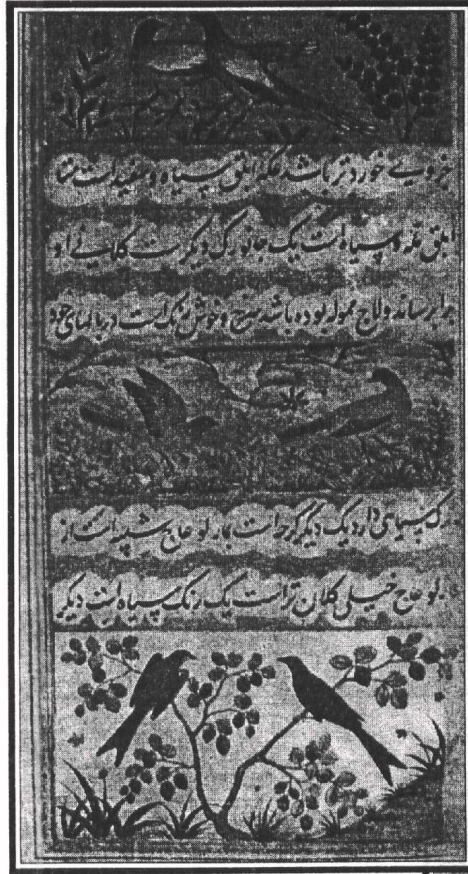 بزویی خوردتر باشد عکه ابلق سیاه و سفید است متا
ابلق تنه و سیاه است یک جانورک دیگرست کلانی او
برابر ساند ولاج مموله بوده باشد سرخ و خوش رنگ است در بالهای خود
سیاهی دارد یک دیگر کرجه است بار لوعاج شپیه است از
لوعاج خیلی کلان تر است یک رنگ سیاه است دیگر